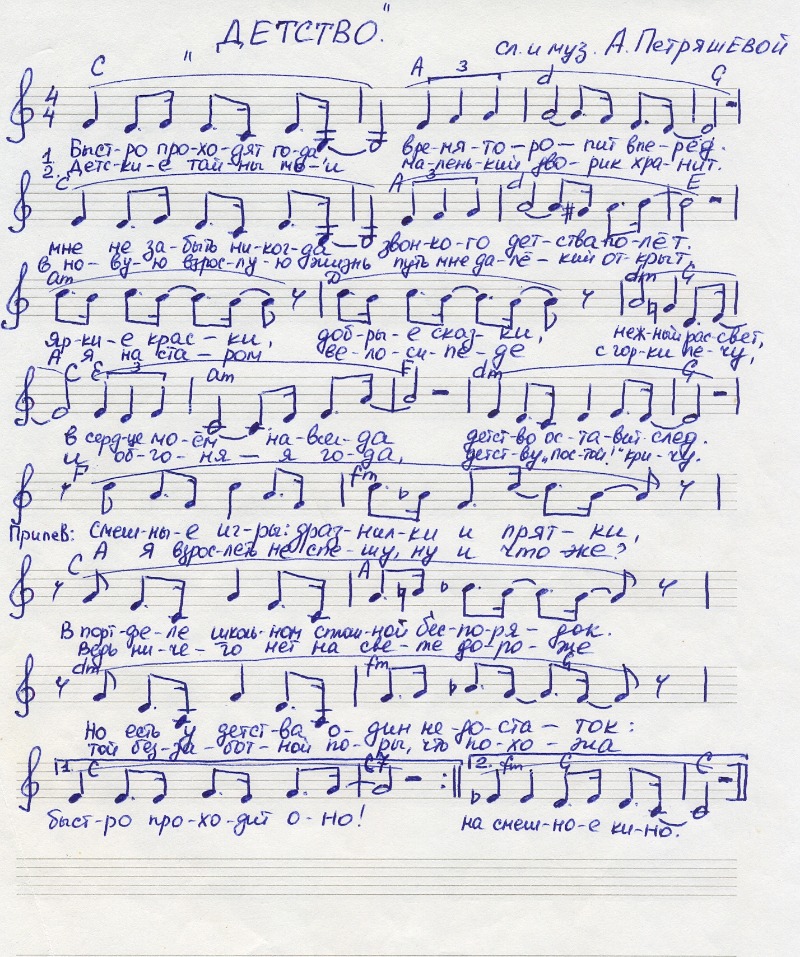 "ДЕТСТВО."
сл. и муз. А. Петряшевой
C A 3 d G
1. Быст-ро про-хо-дят го-да вре-мя-то-ро-пит впе-рёд.
2. Детс-ки-е тай-ны мо-и ма-лень-кий дво-рик хра-нит.
C A 3 d E
мне не за-быть ни-ког-да звон-ко-го дет-ства по-лёт.
в но-ву-ю взрос-лу-ю жизнь путь мне да-лё-кий от-крыт,
am D dm G
Яр-ки-е крас-ки, доб-ры-е сказ-ки, неж-ный рас-свет,
А я на ста-ром ве-ло-си-пе-де с гор-ки ле-чу,
C E 3 am F dm G
в серд-це мо-ём на-всег-да детст-во ос-та-вит след.
и об-го-ня-я го-да, детст-ву "пос-той!" кри-чу.
F fm
Припев: Смеш-ны-е иг-ры: драз-нил-ки и прят-ки,
А я взрос-леть не спе-шу, ну и что же?
C A
В порт-фе-ле школь-ном сплош-ной бес-по-ря-док.
Ведь ни-че-го нет на све-те до-ро-же
dm fm G
Но есть у детст-ва о-дин не-до-ста-ток:
той без-за-бот-ной по-ры, что по-хо-жа
1. C C7 2. fm G C
быст-ро про-хо-дит о-но! на смеш-но-е ки-но.